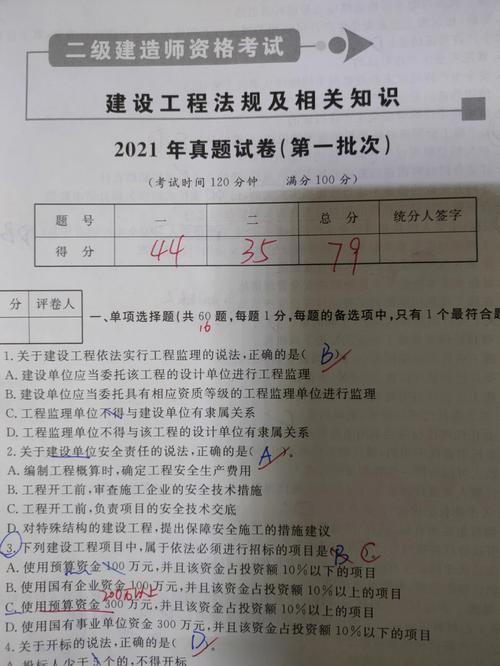 二级建造师资格考试
建设工程法规及相关知识
2021年真题试卷(第一批次)
(考试时间120分钟 满分100分)
题号 一 二 总分 统分人签字
得分 44 35 79
分 评卷人
一、单项选择题(共60题,每题1分,每题的备选项中,只有1个最符合题
16
1.关于建设工程依法实行工程监理的说法,正确的是( B )。
A.建设单位应当委托该工程的设计单位进行工程监理
B.建设单位应当委托具有相应资质等级的工程监理单位进行监理
C.工程监理单位不得与建设单位有隶属关系
D.工程监理单位不得与该工程的设计单位有隶属关系
2.关于建设单位安全责任的说法,正确的是( A )。
A.编制工程概算时,确定工程安全生产费用
B.工程开工前,审查施工企业的安全技术措施
C.工程开工前,负责项目的安全技术交底
D.对特殊结构的建设工程,提出保障安全施工的措施建议
3.下列建设工程项目中,属于依法必须进行招标的项目是 B C
A.使用预算资金100万元,并且该资金占投资额10%以下的项目
B.使用国有企业资金100万元,并且该资金占投资额10%以上的项目
200万以上
C.使用预算资金300万元,并且该资金占投资额10%以上的项目
D.使用国有事业单位资金300万元,并且该资金占投资额10%以下的项目
4.关于开标的说法,正确的是( D )
A.投标人少于3个的,不得开标